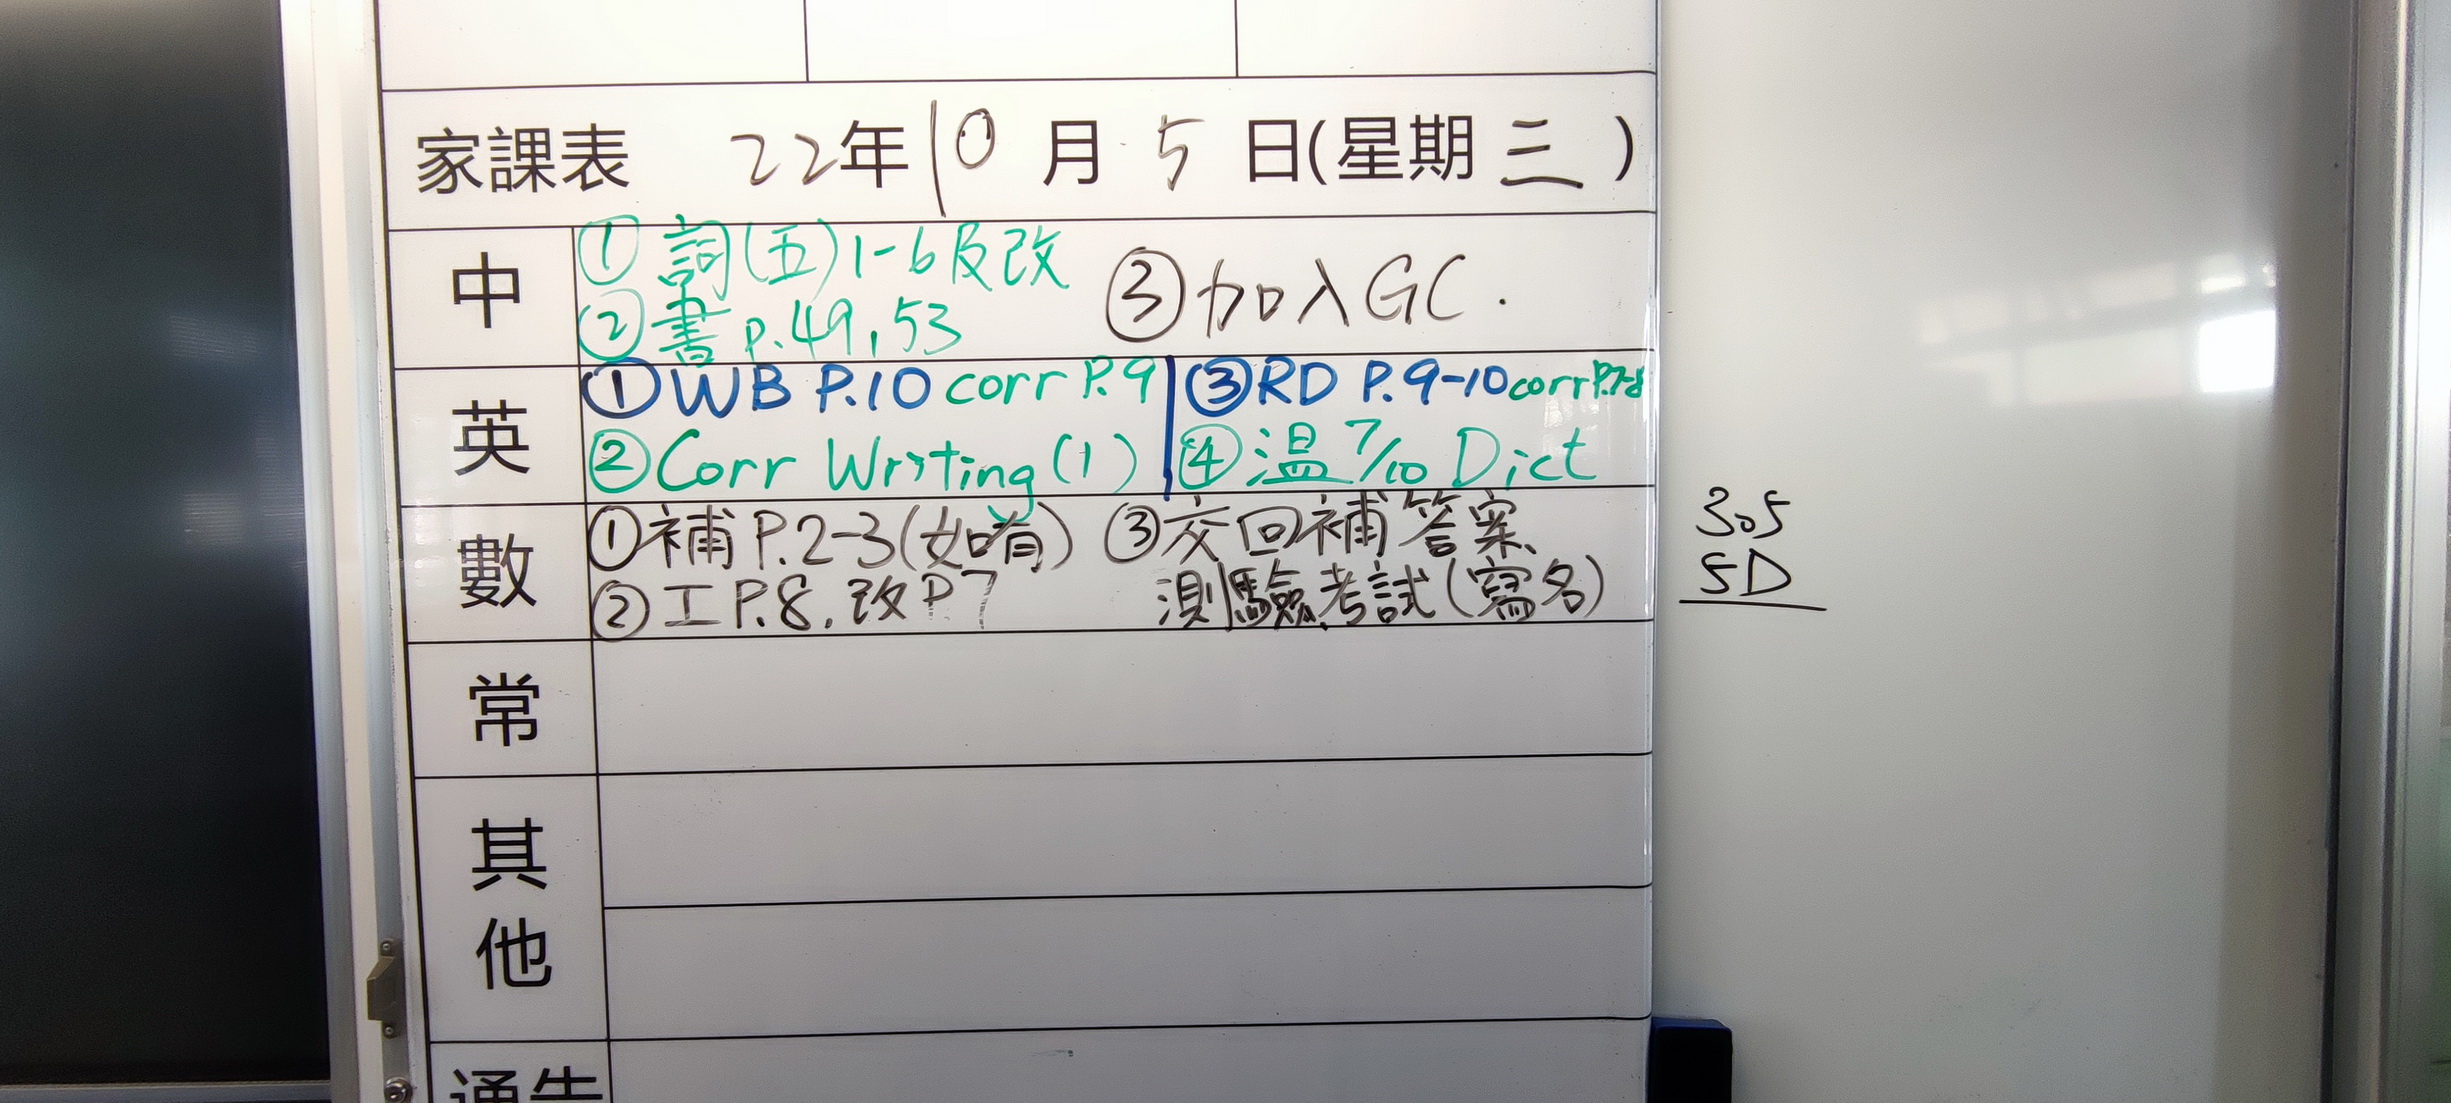 家課表 22年10月5日(星期三)
中
①詞(五)1-6及改
②書p.49,53
③加入GC.
英
①WB P.10 corr P.9
②Corr Writing(1)
③RD P.9-10 corr P.7-8
④温7/10 Dict
數
①補P.2-3(如有)
②工P.8.改P7
③交回補答案、
測驗考試(寫名)
常
其他
通告
305
5D